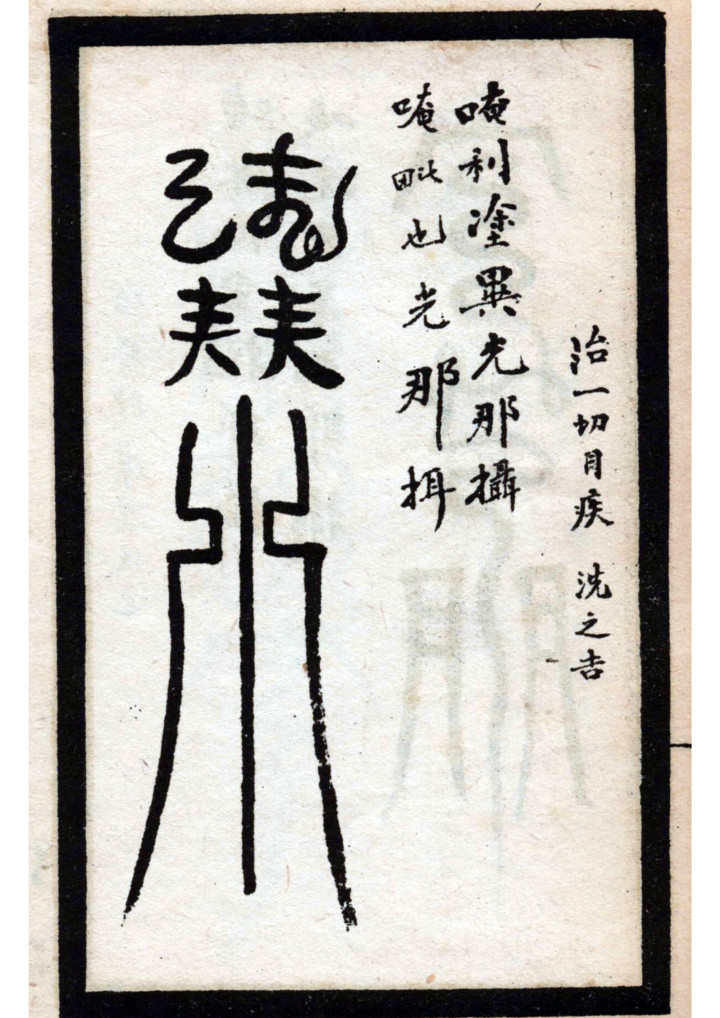 治一切目疾 洗之吉
唵利塗異光那攝
唵毗也光那揖